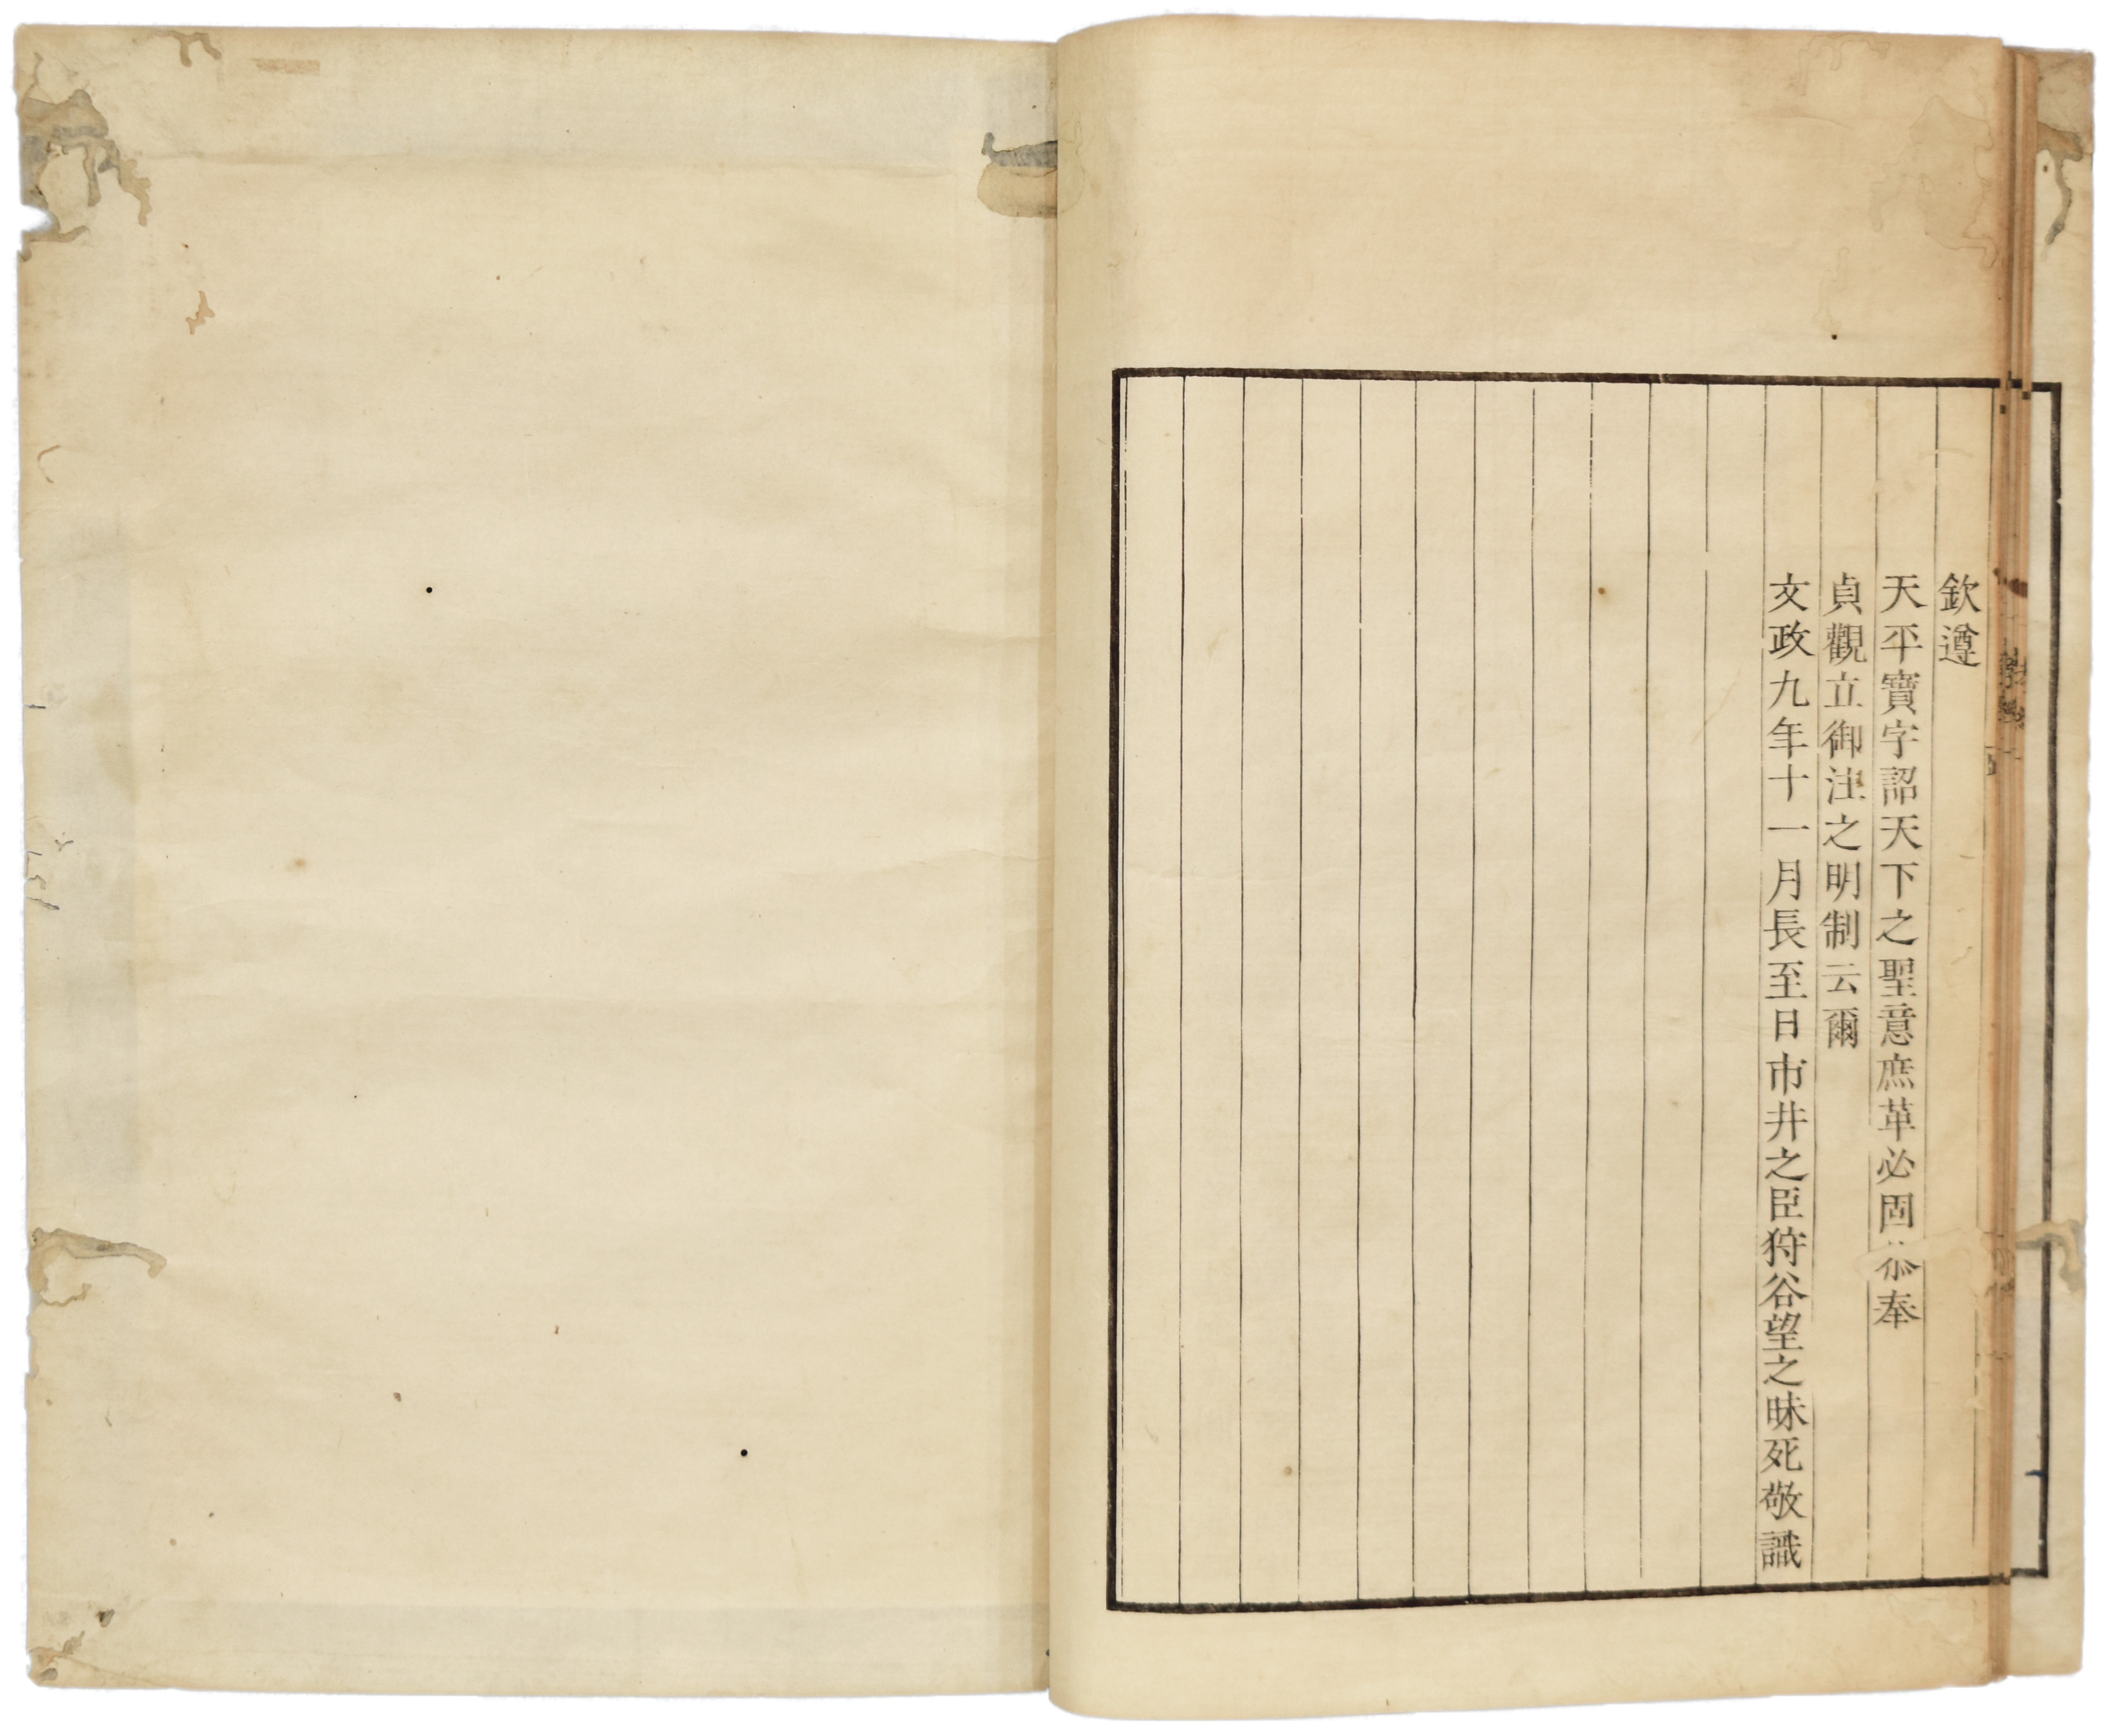 欽遵
天平寶字詔天下之聖意庶革必固恭奉
貞觀立御注之明制云爾
文政九年十一月長至日市井之臣狩谷望之昧死敬識